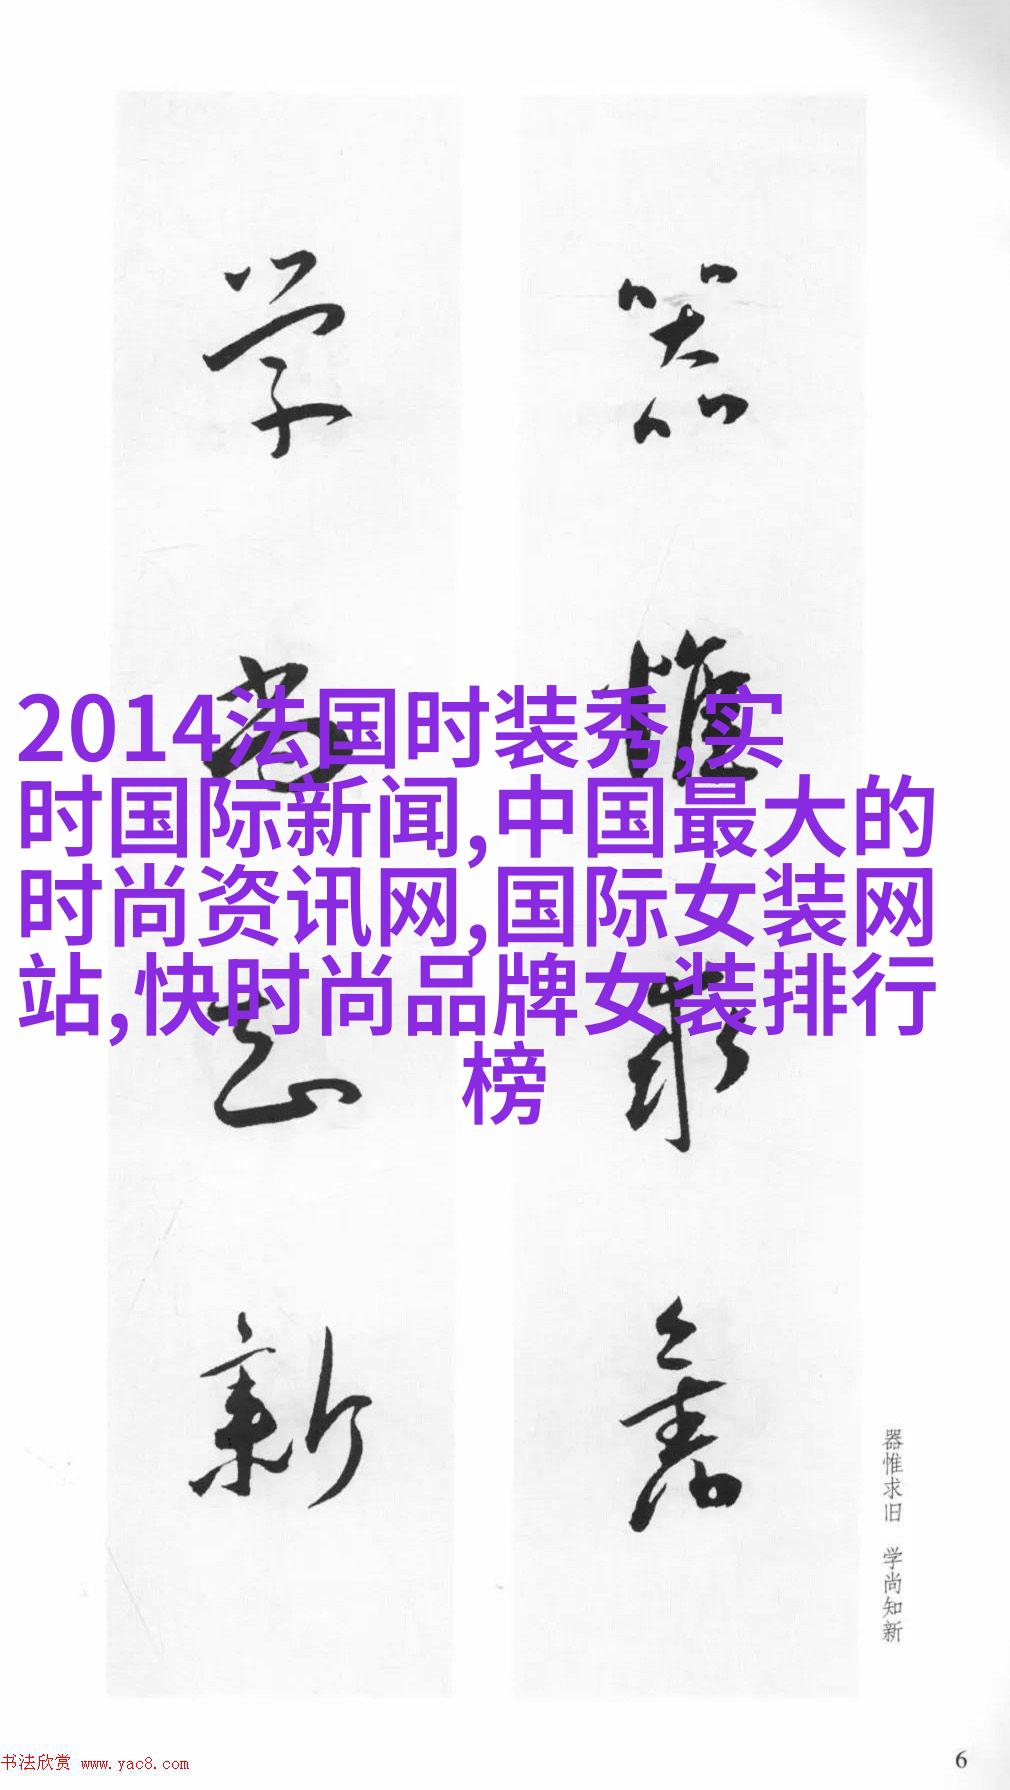 器惟求舊
学尚知新
2014法国时装秀,实
时国际新闻,中国最大的
时尚资讯网,国际女装网
站,快时尚品牌女装排行
榜
器惟求旧 学尚知新
书法欣赏 www.yac8.com
6